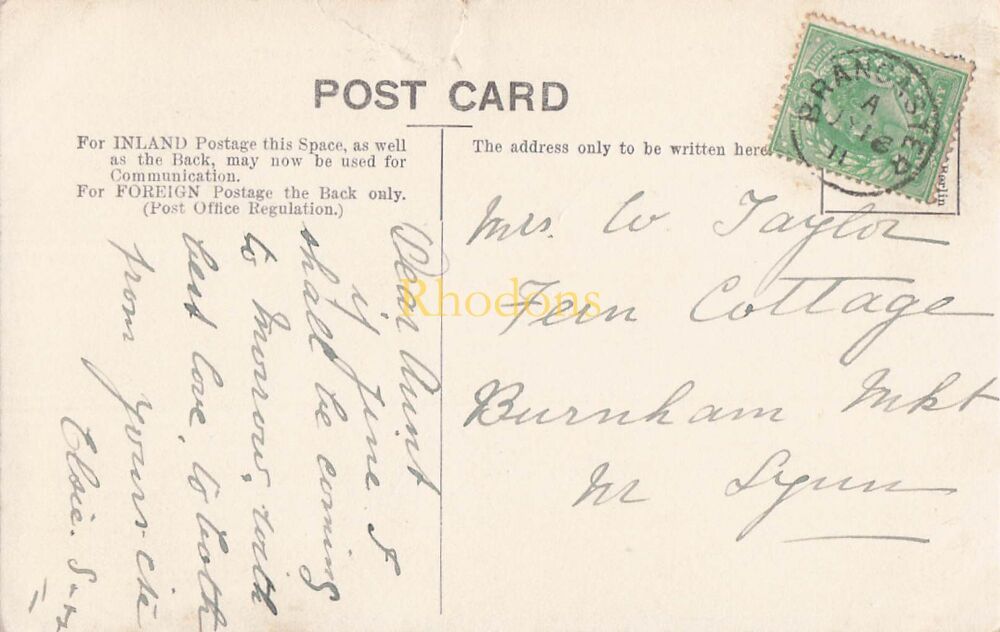 POST CARD
For INLAND Postage this Space, as well
as the Back, may now be used for
Communication.
For FOREIGN Postage the Back only.
(Post Office Regulation.)
The address only to be written here
BRANCASTER
A
11
Berlin
Mrs. W. Taylor
Fern Cottage
Burnham Mkt
Nr Lynn
Dear Aunt
June I
shall be coming
to morrow, with
best love, to both
from yours
Elsie.
Rhodons